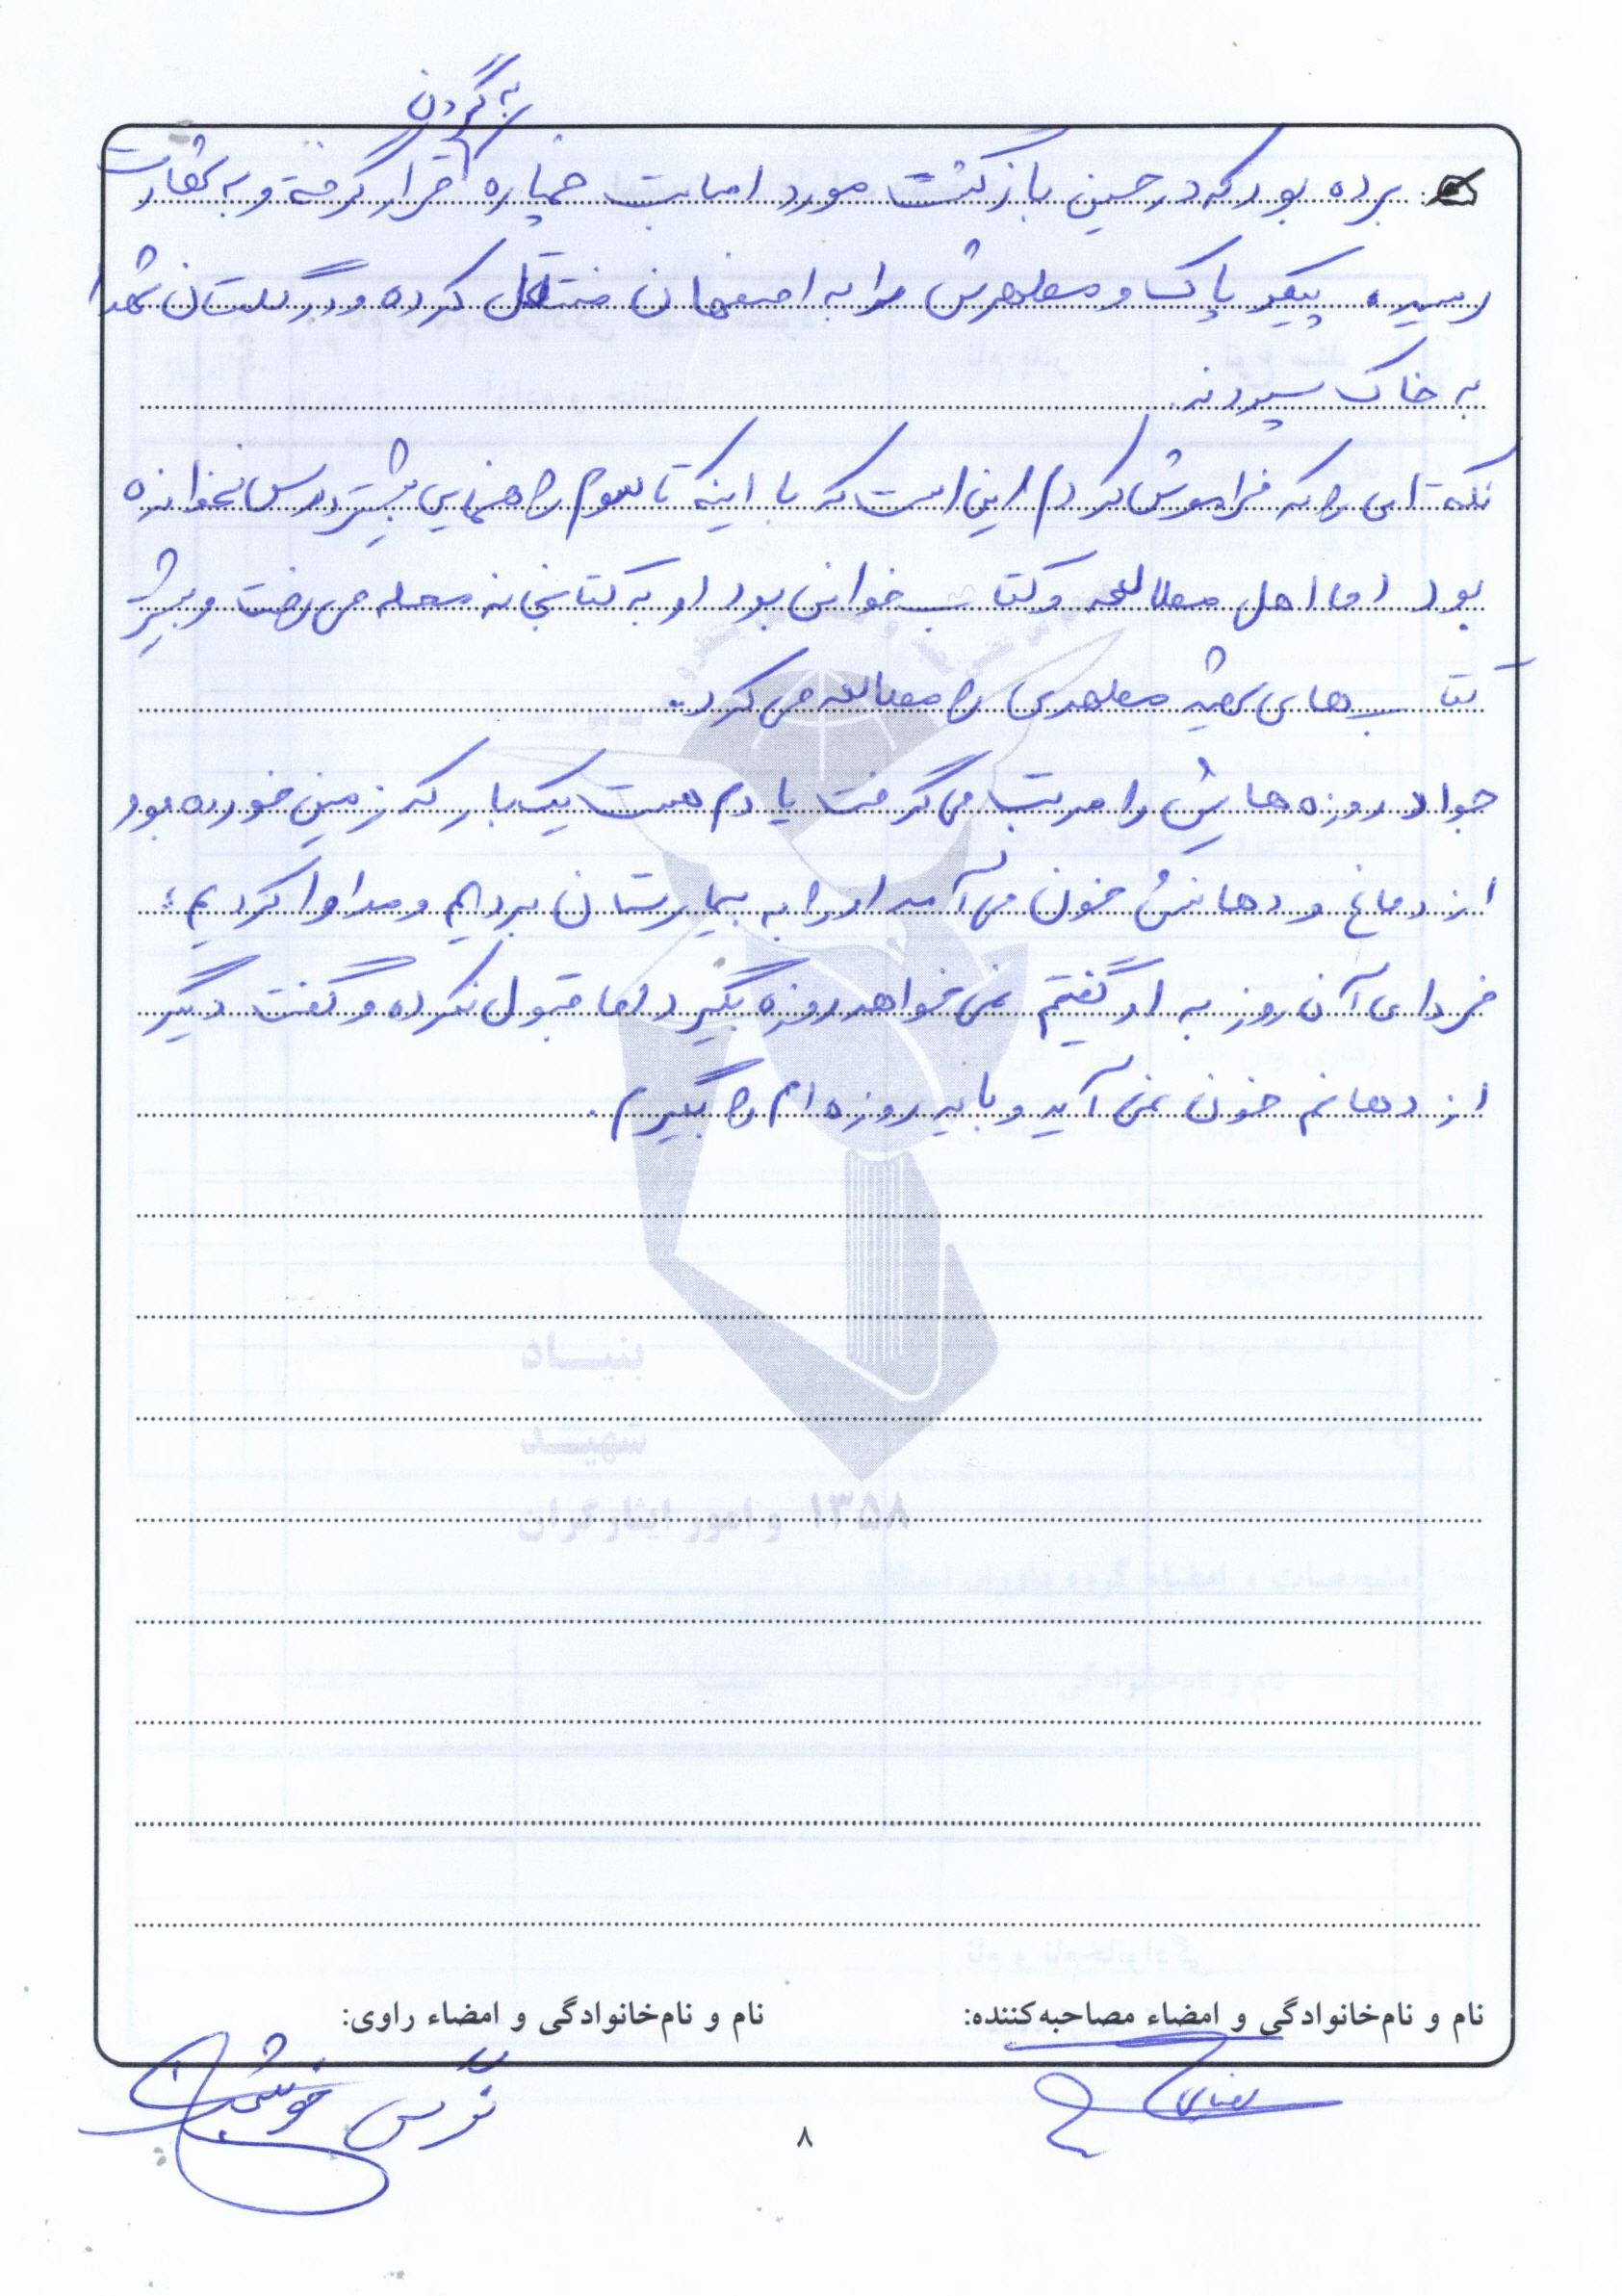 به گردن
برده بود که در حین بازگشت مورد اصابت خمپاره قرار گرفته و به شهادت
رسید، پیکر پاک و مطهرش را به اصفهان منتقل کرده و در گلستان شهدا
به خاک سپردند.
نکته ای را که فراموش کردم این است که با اینکه تا سوم راهنمایی بیشتر درس نخوانده
بود اما اهل مطالعه و کتاب خوانی بود او به کتابخانه محله می رفت و بیشتر
کتاب های شهید مطهری را مطالعه می کرد.
جواد روزه هایش را مرتب می گرفت یادم هست یک بار که زمین خورده بود
از دماغ و دهانش خون می آمد او را به بیمارستان بردیم و مداوا کردیم؛
فردای آن روز به او گفتم نمی خواهد روزه بگیرد اما قبول نکرده و گفت دیگر
از دهانم خون نمی آید و باید روزه ام را بگیرم.
بنیاد
شهید
و امور ایثارگران ۱۳۵۸
نام و نام‌خانوادگی و امضاء مصاحبه‌کننده:
نام و نام‌خانوادگی و امضاء راوی:
نرگس
۸